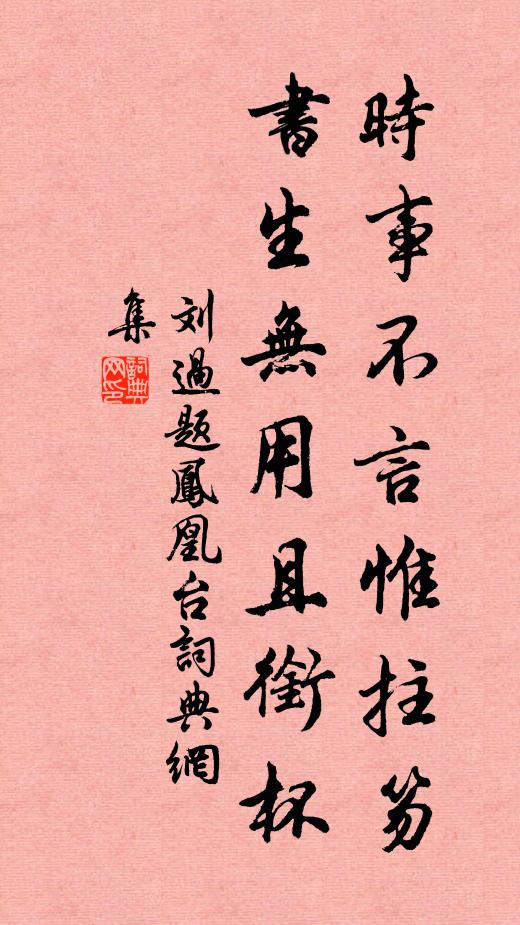 時事不言惟拄笏
書生無用且銜杯
刘過题鳳凰台詞典網
集
詞典
网印